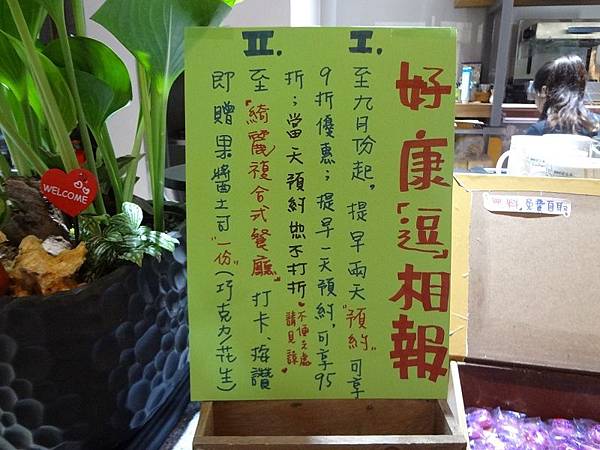 好康「逗」相報
I.
至九月份起，提早兩天"預約"可享
9折優惠；提早一天預約，可享95
折；當天預約恕不打折
不便之處
請見諒
II.
至「綺麗複合式餐廳」打卡、按讚
即贈果醬土司"一份"(巧克力/花生)
WELCOME